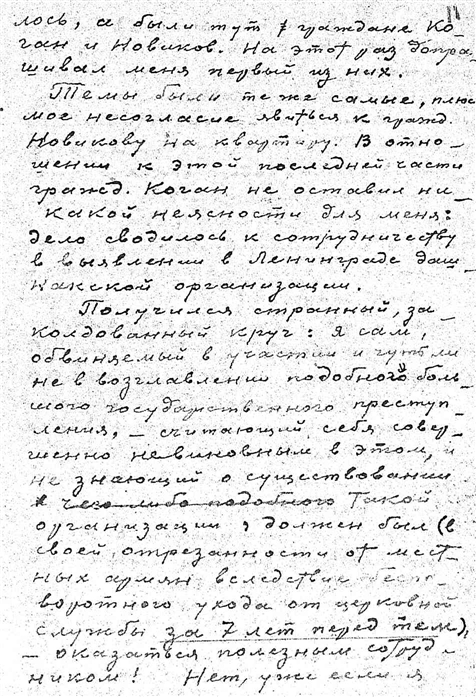 11
лось, а были тут граждане Ко-
ган и Новиков. На этот раз допра-
шивал меня первый из них.
Темы были те же самые, плюс
мое несогласие явиться к гражд.
Новикову на квартиру. В отно-
шении к этой последней части
гражд. Коган не оставил ни-
какой неясности для меня:
дело сводилось к сотрудничеству
в выявлении в Ленинграде даш-
накской организации.
Получился странный, за
колдованный круг: я сам,
обвиняемый в участии и чуть ли
не в возглавлении подобного боль-
шого государственного преступ-
ления, — считающий себя совер-
шенно невиновным в этом, и
не знающий о существовании
чего либо подобного такой
организации, должен был (в
своей отрезанности от мест-
ных армян вследствие беспо-
воротного ухода от церковной
службы за 7 лет перед тем),
— оказаться полезным сотруд-
ником! Нет, уже если я